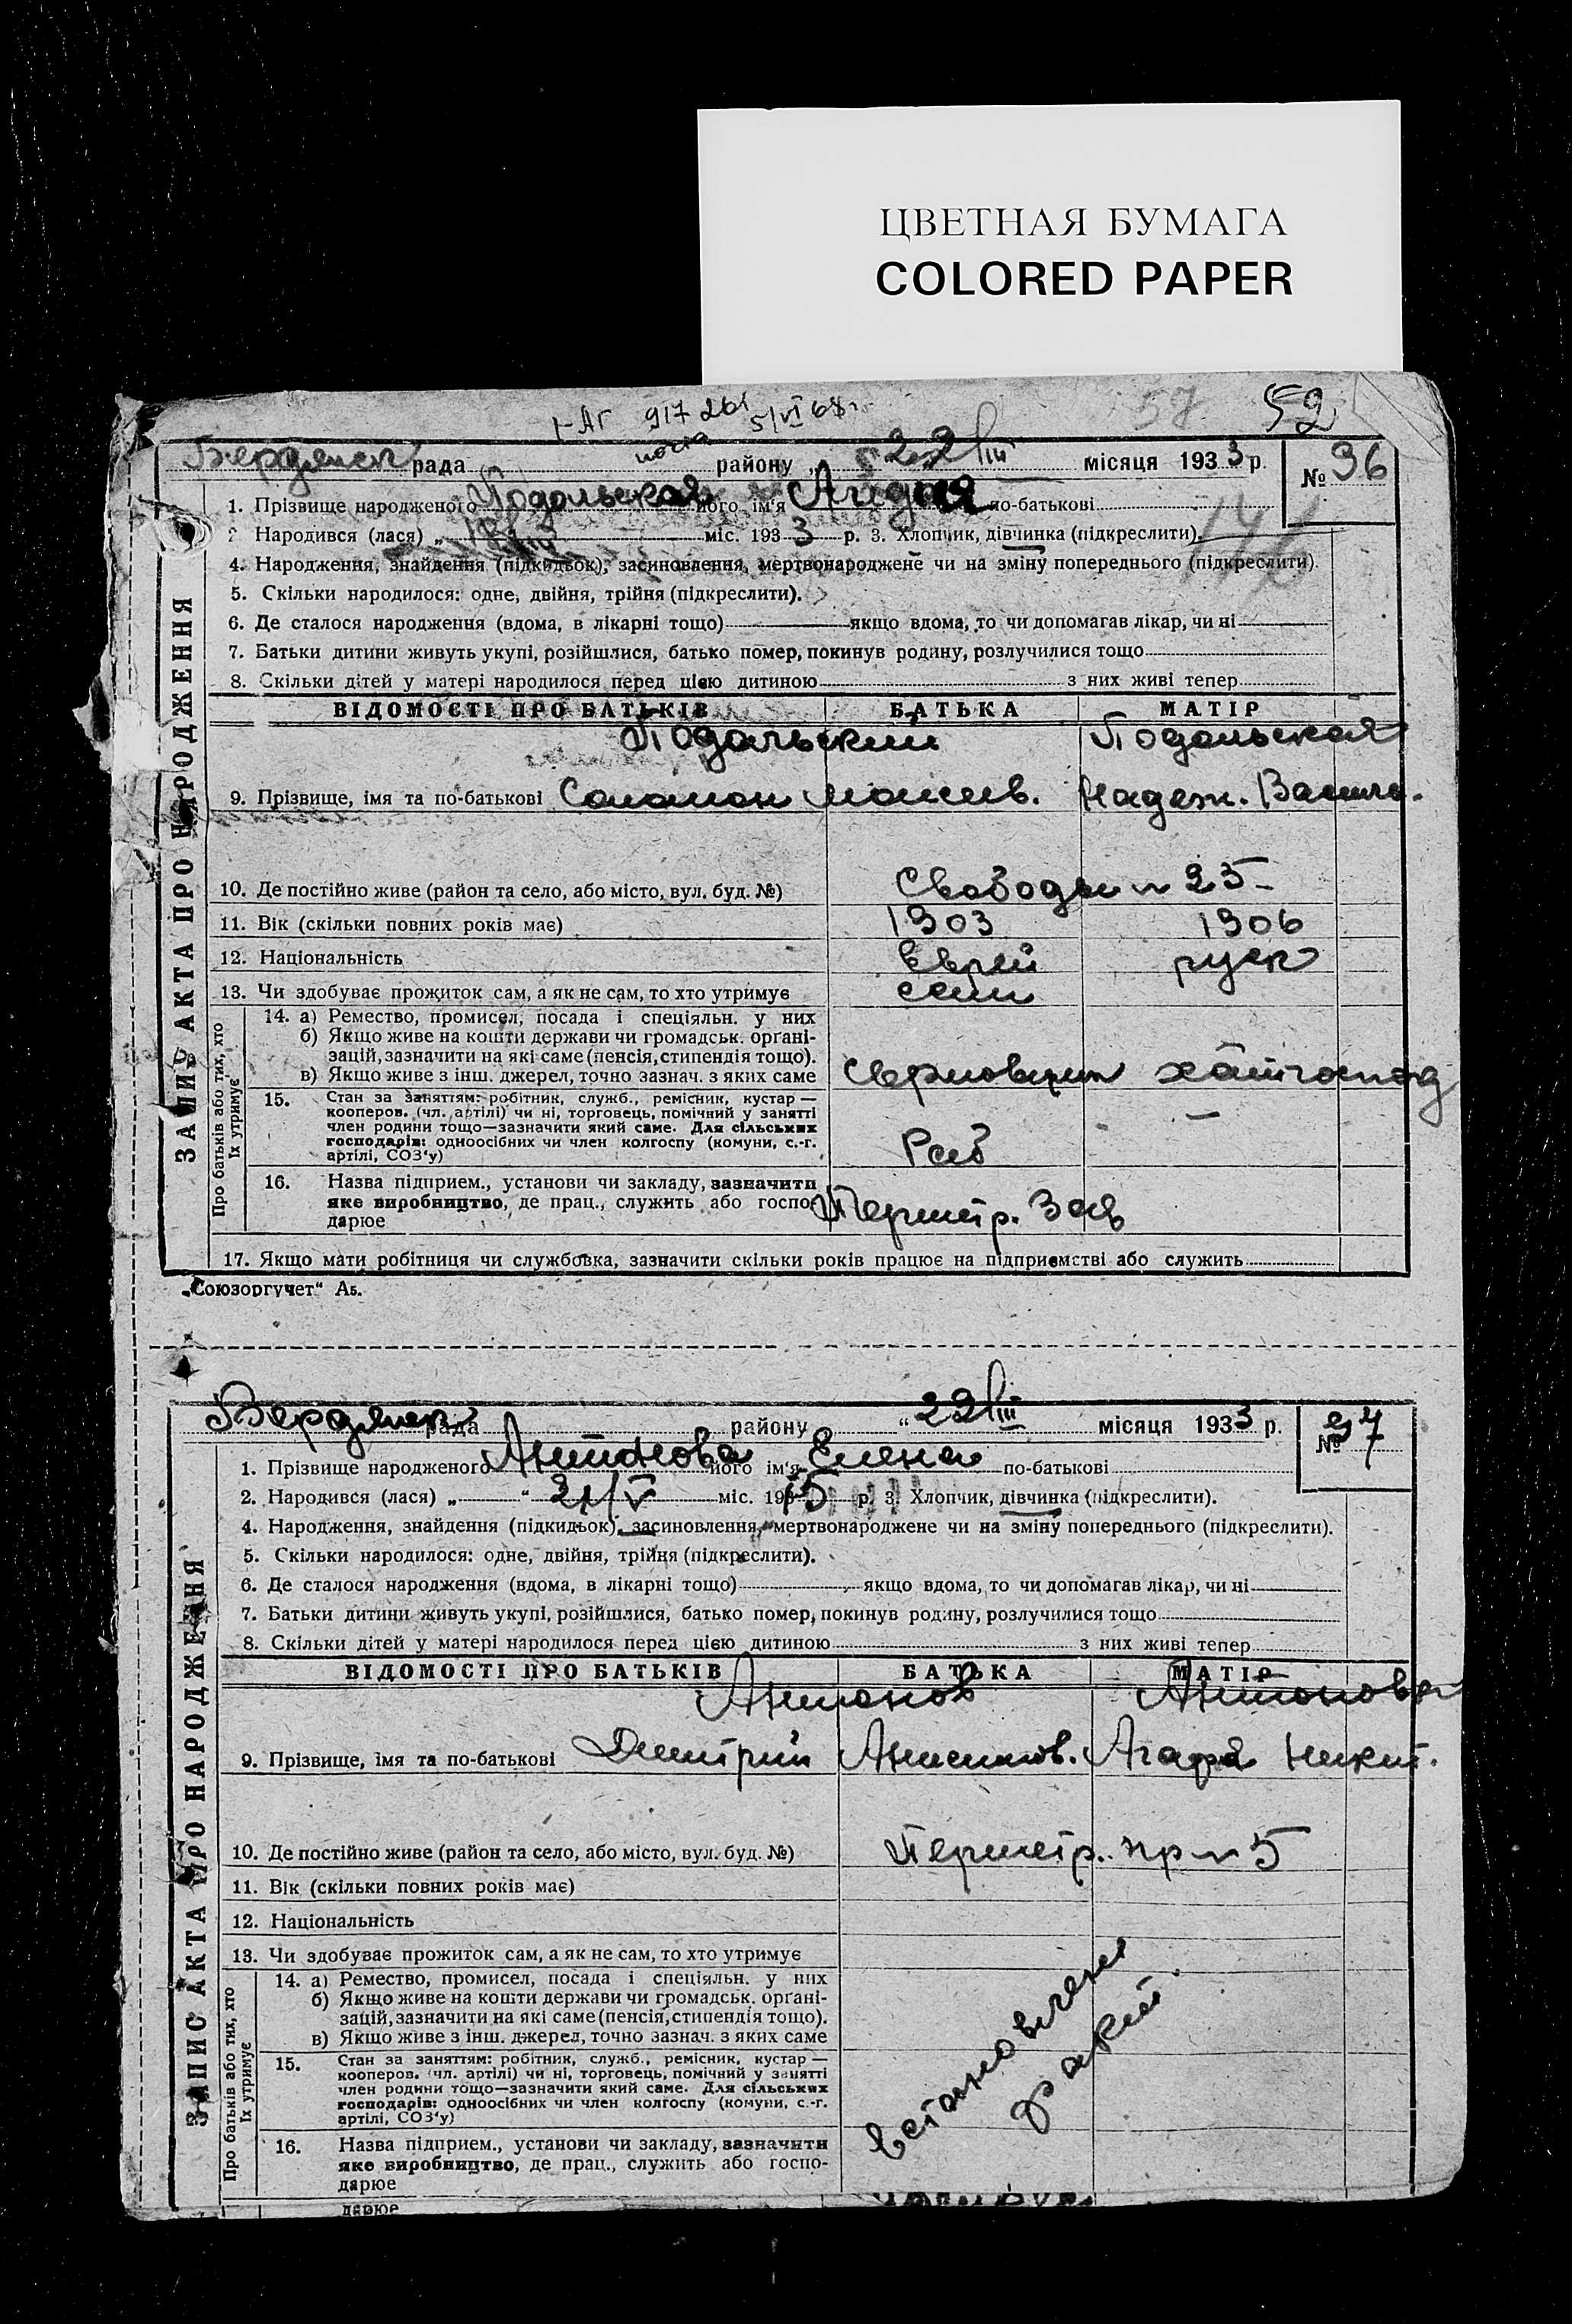 ЦВЕТНАЯ БУМАГА
COLORED PAPER
І-АГ 917261 5/VI 68 г.
57 52
Бердянск рада району „ 22/III місяця 1933 р. № 96
1. Прізвище народженого Подольская його ім'я по-батькові
2. Народився (лася) „ міс. 1933 р. 3. Хлопчик, дівчинка (підкреслити).
4. Народження, знайдення (підкидьок), засиновлення, мертвонароджене чи на зміну попереднього (підкреслити).
5. Скільки народилося: одне, двійня, трійня (підкреслити).
6. Де сталося народження (вдома, в лікарні тощо) якщо вдома, то чи допомагав лікар, чи ні
7. Батьки дитини живуть укупі, розійшлися, батько помер, покинув родину, розлучилися тощо
8. Скільки дітей у матері народилося перед цією дитиною з них живі тепер
ВІДОМОСТІ ПРО БАТЬКІВ БАТЬКА МАТІР
Подольский Подольская
9. Прізвище, імя та по-батькові Соломон Моисеев. Надеж. Васил.
10. Де постійно живе (район та село, або місто, вул. буд. №) Свободы № 25
11. Вік (скільки повних років має) 1903 1906
12. Національність Еврей руск
13. Чи здобуває прожиток сам, а як не сам, то хто утримує сам
14. а) Ремество, промисел, посада і спеціяльн. у них
б) Якщо живе на кошти держави чи громадськ. органі-
зацій, зазначити на які саме (пенсія, стипендія тощо).
в) Якщо живе з інш. джерел, точно зазнач. з яких саме хатгоспод
15. Стан за заняттям: робітник, служб., ремісник, кустар —
кооперов. (чл. артілі) чи ні, торговець, помічний у занятті
член родини тощо—зазначити який саме. Для сільських
господарів: одноосібних чи член колгоспу (комуни, с.-г.
артілі, СОЗ'у) Раб —
16. Назва підприєм., установи чи закладу, зазначити
яке виробництво, де прац., служить або госпо-
дарює Первтр. Зав
17. Якщо мати робітниця чи службовка, зазначити скільки років працює на підприємстві або служить
ЗАПИС АКТА ПРО НАРОДЖЕННЯ
Про батьків або тих, хто
їх утримує
„Союзоргучет“ Аб.
Бердянск рада району “ 22/III місяця 1933 р. № 97
1. Прізвище народженого Антонова його ім'я Елена по-батькові
2. Народився (лася) „ “ 21/V міс. 1915 р. 3. Хлопчик, дівчинка (підкреслити).
4. Народження, знайдення (підкидьок), засиновлення, мертвонароджене чи на зміну попереднього (підкреслити).
5. Скільки народилося: одне, двійня, трійня (підкреслити).
6. Де сталося народження (вдома, в лікарні тощо) якщо вдома, то чи допомагав лікар, чи ні
7. Батьки дитини живуть укупі, розійшлися, батько помер, покинув родину, розлучилися тощо
8. Скільки дітей у матері народилося перед цією дитиною з них живі тепер
ВІДОМОСТІ ПРО БАТЬКІВ БАТЬКА МАТІР
Антонов Антонова
9. Прізвище, імя та по-батькові Дмитрий Анисимов. Агафя Никит.
10. Де постійно живе (район та село, або місто, вул. буд. №) пр № 5
11. Вік (скільки повних років має)
12. Національність
13. Чи здобуває прожиток сам, а як не сам, то хто утримує
14. а) Ремество, промисел, посада і спеціяльн. у них
б) Якщо живе на кошти держави чи громадськ. органі-
зацій, зазначити на які саме (пенсія, стипендія тощо).
в) Якщо живе з інш. джерел, точно зазнач. з яких саме
15. Стан за заняттям: робітник, служб., ремісник, кустар —
кооперов. (чл. артілі) чи ні, торговець, помічний у занятті
член родини тощо—зазначити який саме. Для сільських
господарів: одноосібних чи член колгоспу (комуни, с.-г.
артілі, СОЗ'у)
16. Назва підприєм., установи чи закладу, зазначити
яке виробництво, де прац., служить або госпо-
дарює
встановлен
факт.
ЗАПИС АКТА ПРО НАРОДЖЕННЯ
Про батьків або тих, хто
їх утримує
дарює